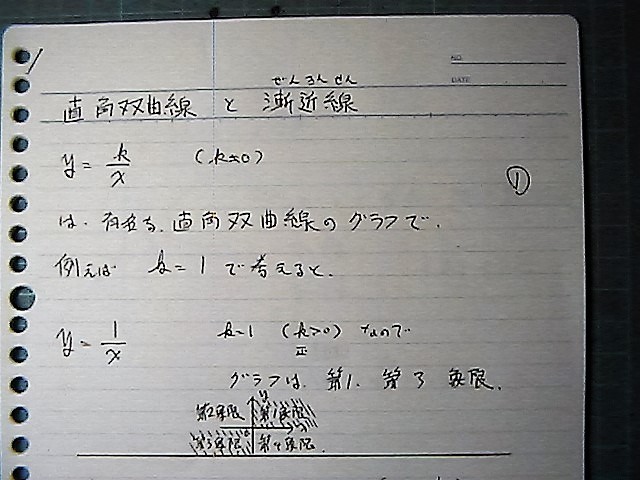 NO.
DATE
ぜんきんせん
直角双曲線 と 漸近線
y = k/x (k≠0)
①
は、有名な、直角双曲線のグラフで、
例えば k=1 で考えると、
y = 1/x k=1 (k>0) なので
正
グラフは、第1、第3 象限、
y
第2象限 第1象限
x
第3象限 第4象限